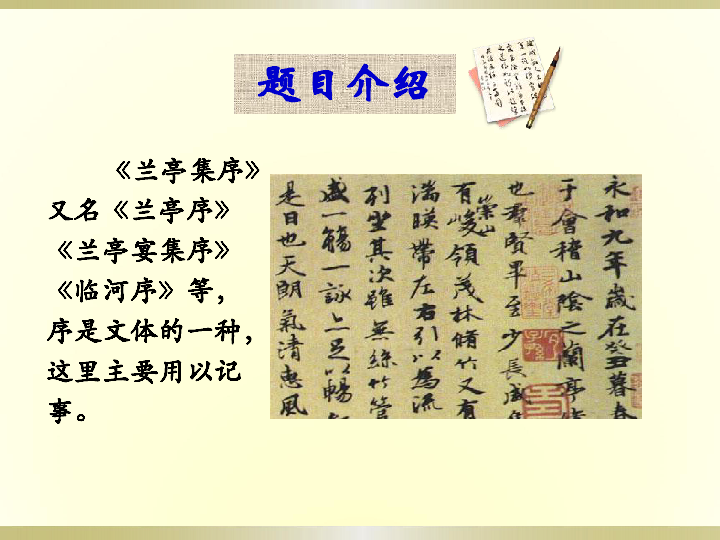 题目介绍
《兰亭集序》
又名《兰亭序》
《兰亭宴集序》
《临河序》等，
序是文体的一种，
这里主要用以记
事。
永和九年歲在癸丑暮春
于會稽山陰之蘭亭脩
也羣賢畢至少長咸
有崇山峻領茂林脩竹又有
湍暎帶左右引以為流
列坐其次雖無絲竹管
盛一觴一詠亦足以暢
是日也天朗氣清惠風